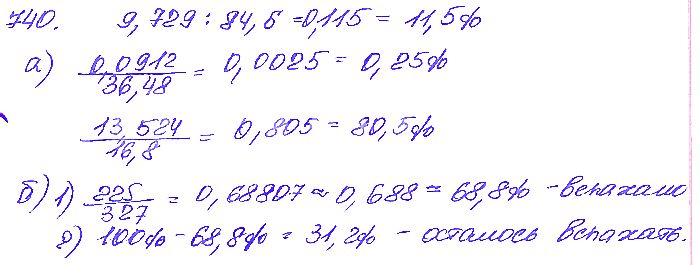 740. 9,729 : 84,6 = 0,115 = 11,5%
а) 0,0912/36,48 = 0,0025 = 0,25%
13,524/16,8 = 0,805 = 80,5%
б) 1) 225/327 = 0,68807 ≈ 0,688 = 68,8% - вспахано
2) 100% - 68,8% = 31,2% - осталось вспахать.